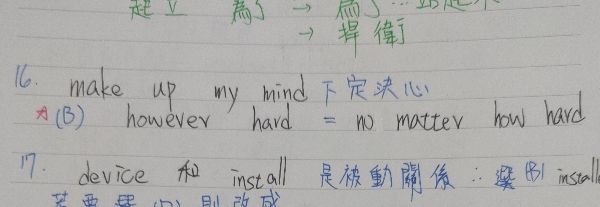 起立 為了 → 為了…站起來
→ 捍衛
16. make up my mind 下定決心
☆(B) however hard = no matter how hard
17. device 和 install 是被動關係 ∴ 選(B) install
若要選(D)則改成